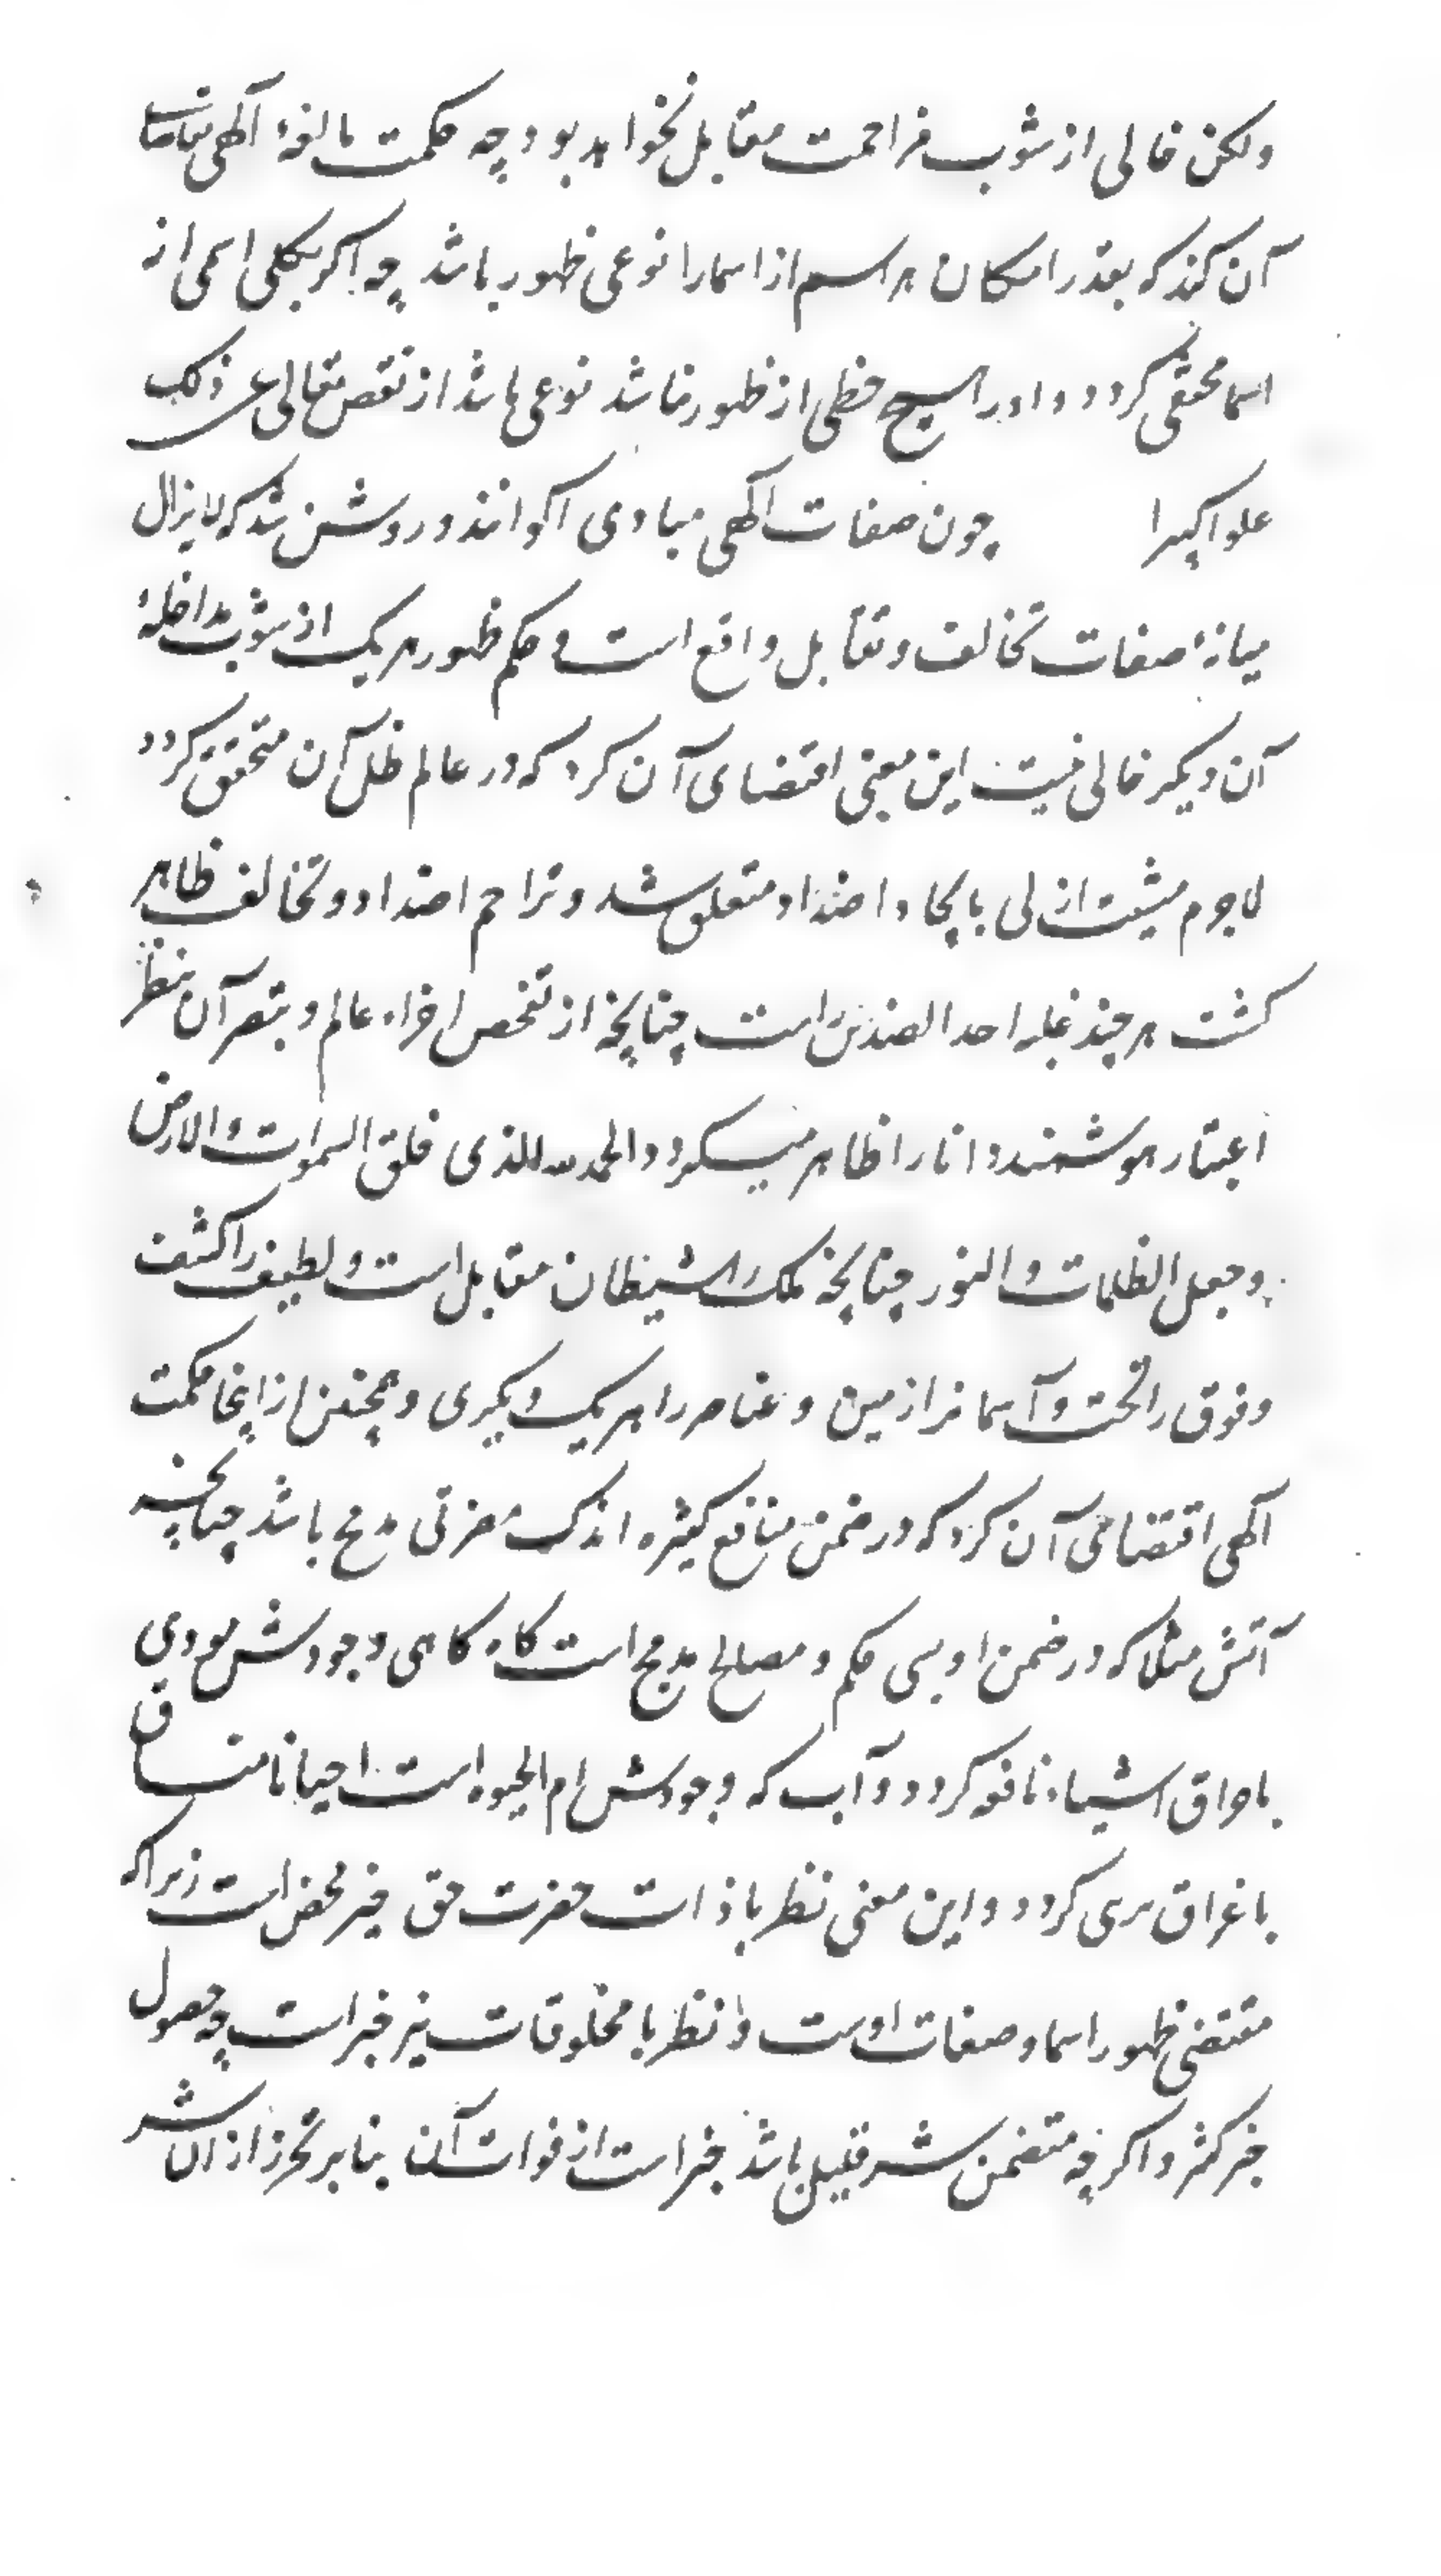 ولکن خالی از شوب مزاحمت مقابل نخواهد بود چه حکمت بالغهٔ آلهی تقاضا
آن کند که بقدر امکان هر اسم از اسما را نوعی ظهور باشد چه اکر بکلی اسمی از
اسما مختفی کردد و او را هیچ حظی از ظهور نباشد نوعی باشد از نقص تعالی عن ذلک
علوا کبیرا چون صفات آلهی مبادی اکوانند و روشن شد که لا یزال
میانهٔ صفات تخالف و تقابل واقع است و حکم ظهور هر یک از شوب مداخلهٔ
آن دیکر خالی نیست این معنی اقتضای آن کرد که در عالم ظل آن متحقق کردد
لاجرم مشیت ازلی بایجاد اضداد متعلق شد و تزاحم اضداد و تخالف ظاهر
کشت هر چند غلبه احد الضدین راست چنانچه از تفحص اجزاء عالم و تبصر آن بنظر
اعتبار هوشمند دانا را ظاهر میکردد الحمد لله الذی خلق السموات والارض
وجعل الظلمات والنور چنانچه ملک را شیطان مقابل است و لطیف را کثیف
وفوق را تحت و آسمانرا زمین و عناصر را هر یک دیکری و همچنین از اینجا حکمت
آلهی اقتضای آن کرد که در ضمن منافع کثیره اندک مضرتی مدمج باشد چنانچه
آتش مثلا که در ضمن او بسی حکم و مصالح مدمج است کاه کاهی وجودش مودی
باحراق اشیاء نافعه کردد و آب که وجودش ام الحیوه است احیانا منساق
باغراق بری کردد و این معنی نظر باذات حضرت حق خیر محض است زیرا که
مقتضی ظهور اسما و صفات اوست و نظر با مخلوقات نیز خیر است چه حصول
خیر کثیر و اکر چه متضمن شر قلیل باشد خیر است از فوات آن بنابر تحرز از آن شر